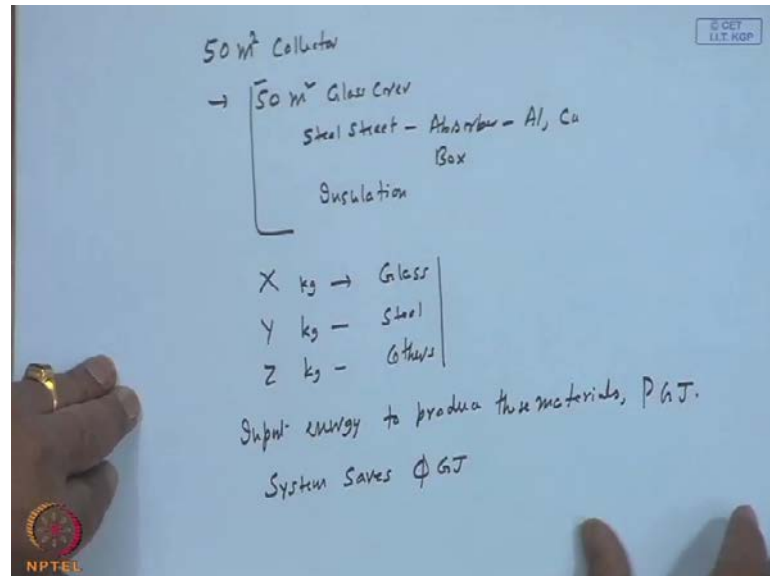 © CET
I.I.T. KGP
50 m² Collector
→ 50 m² Glass Cover
Steel Sheet - Absorber - Al, Cu
Box
Insulation
X kg → Glass
Y kg - Steel
Z kg - Others
Input energy to produce these materials, P GJ.
System Saves φ GJ
NPTEL